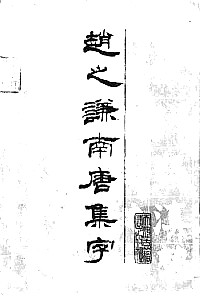 趙之謙南唐集字